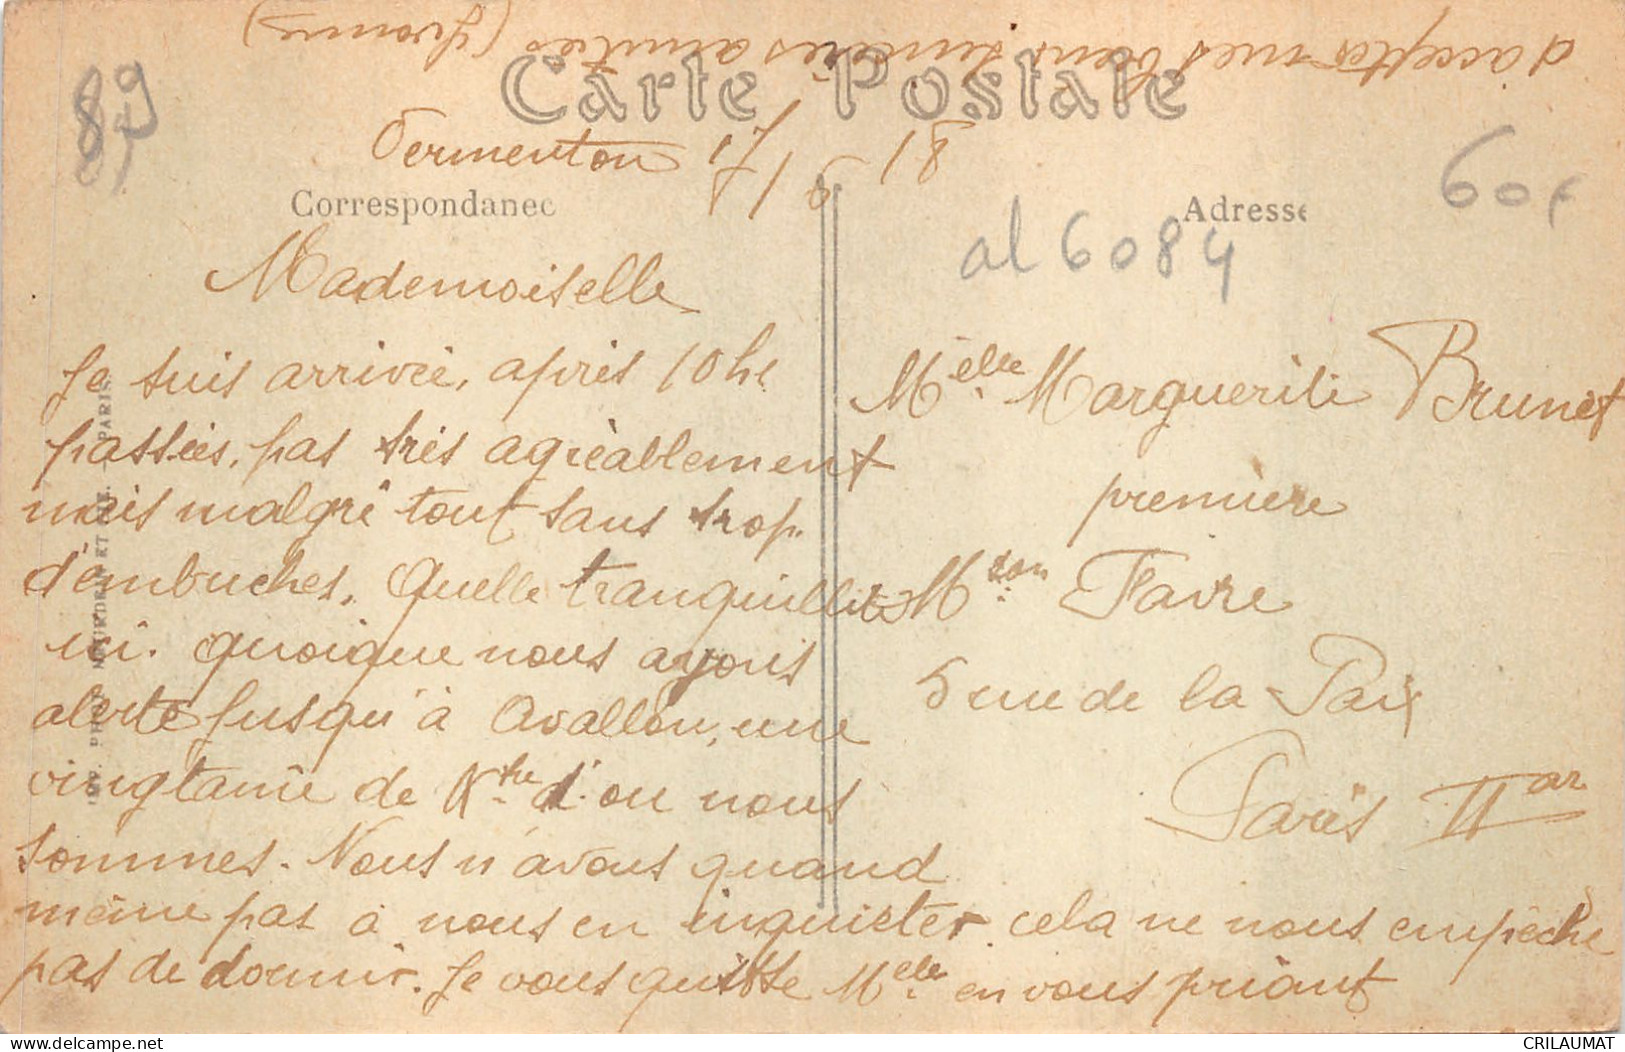 d'accepter mes bien sincères amitiés (Yvonne)
Carte Postale
89
Vermenton 17/6/18
Correspondance
Adresse
60f
al 6084
Mademoiselle
Je suis arrivée, après 10he
passées, pas très agréablement
mais malgré tout sans trop
d'embuches. Quelle tranquillité
ici. quoique nous ayons
alerte jusqu'à Avallon, une
vingtaine de Ktre d'ou nous
sommes. Nous n'avons quand
même pas à nous en inquieter. cela ne nous empèche
pas de dormir. Je vous quitte Melle en vous priant
Melle Marguerite Brunet
première
Mson Favre
5 rue de la Paix
Paris II ar
PARIS.
CRILAUMAT